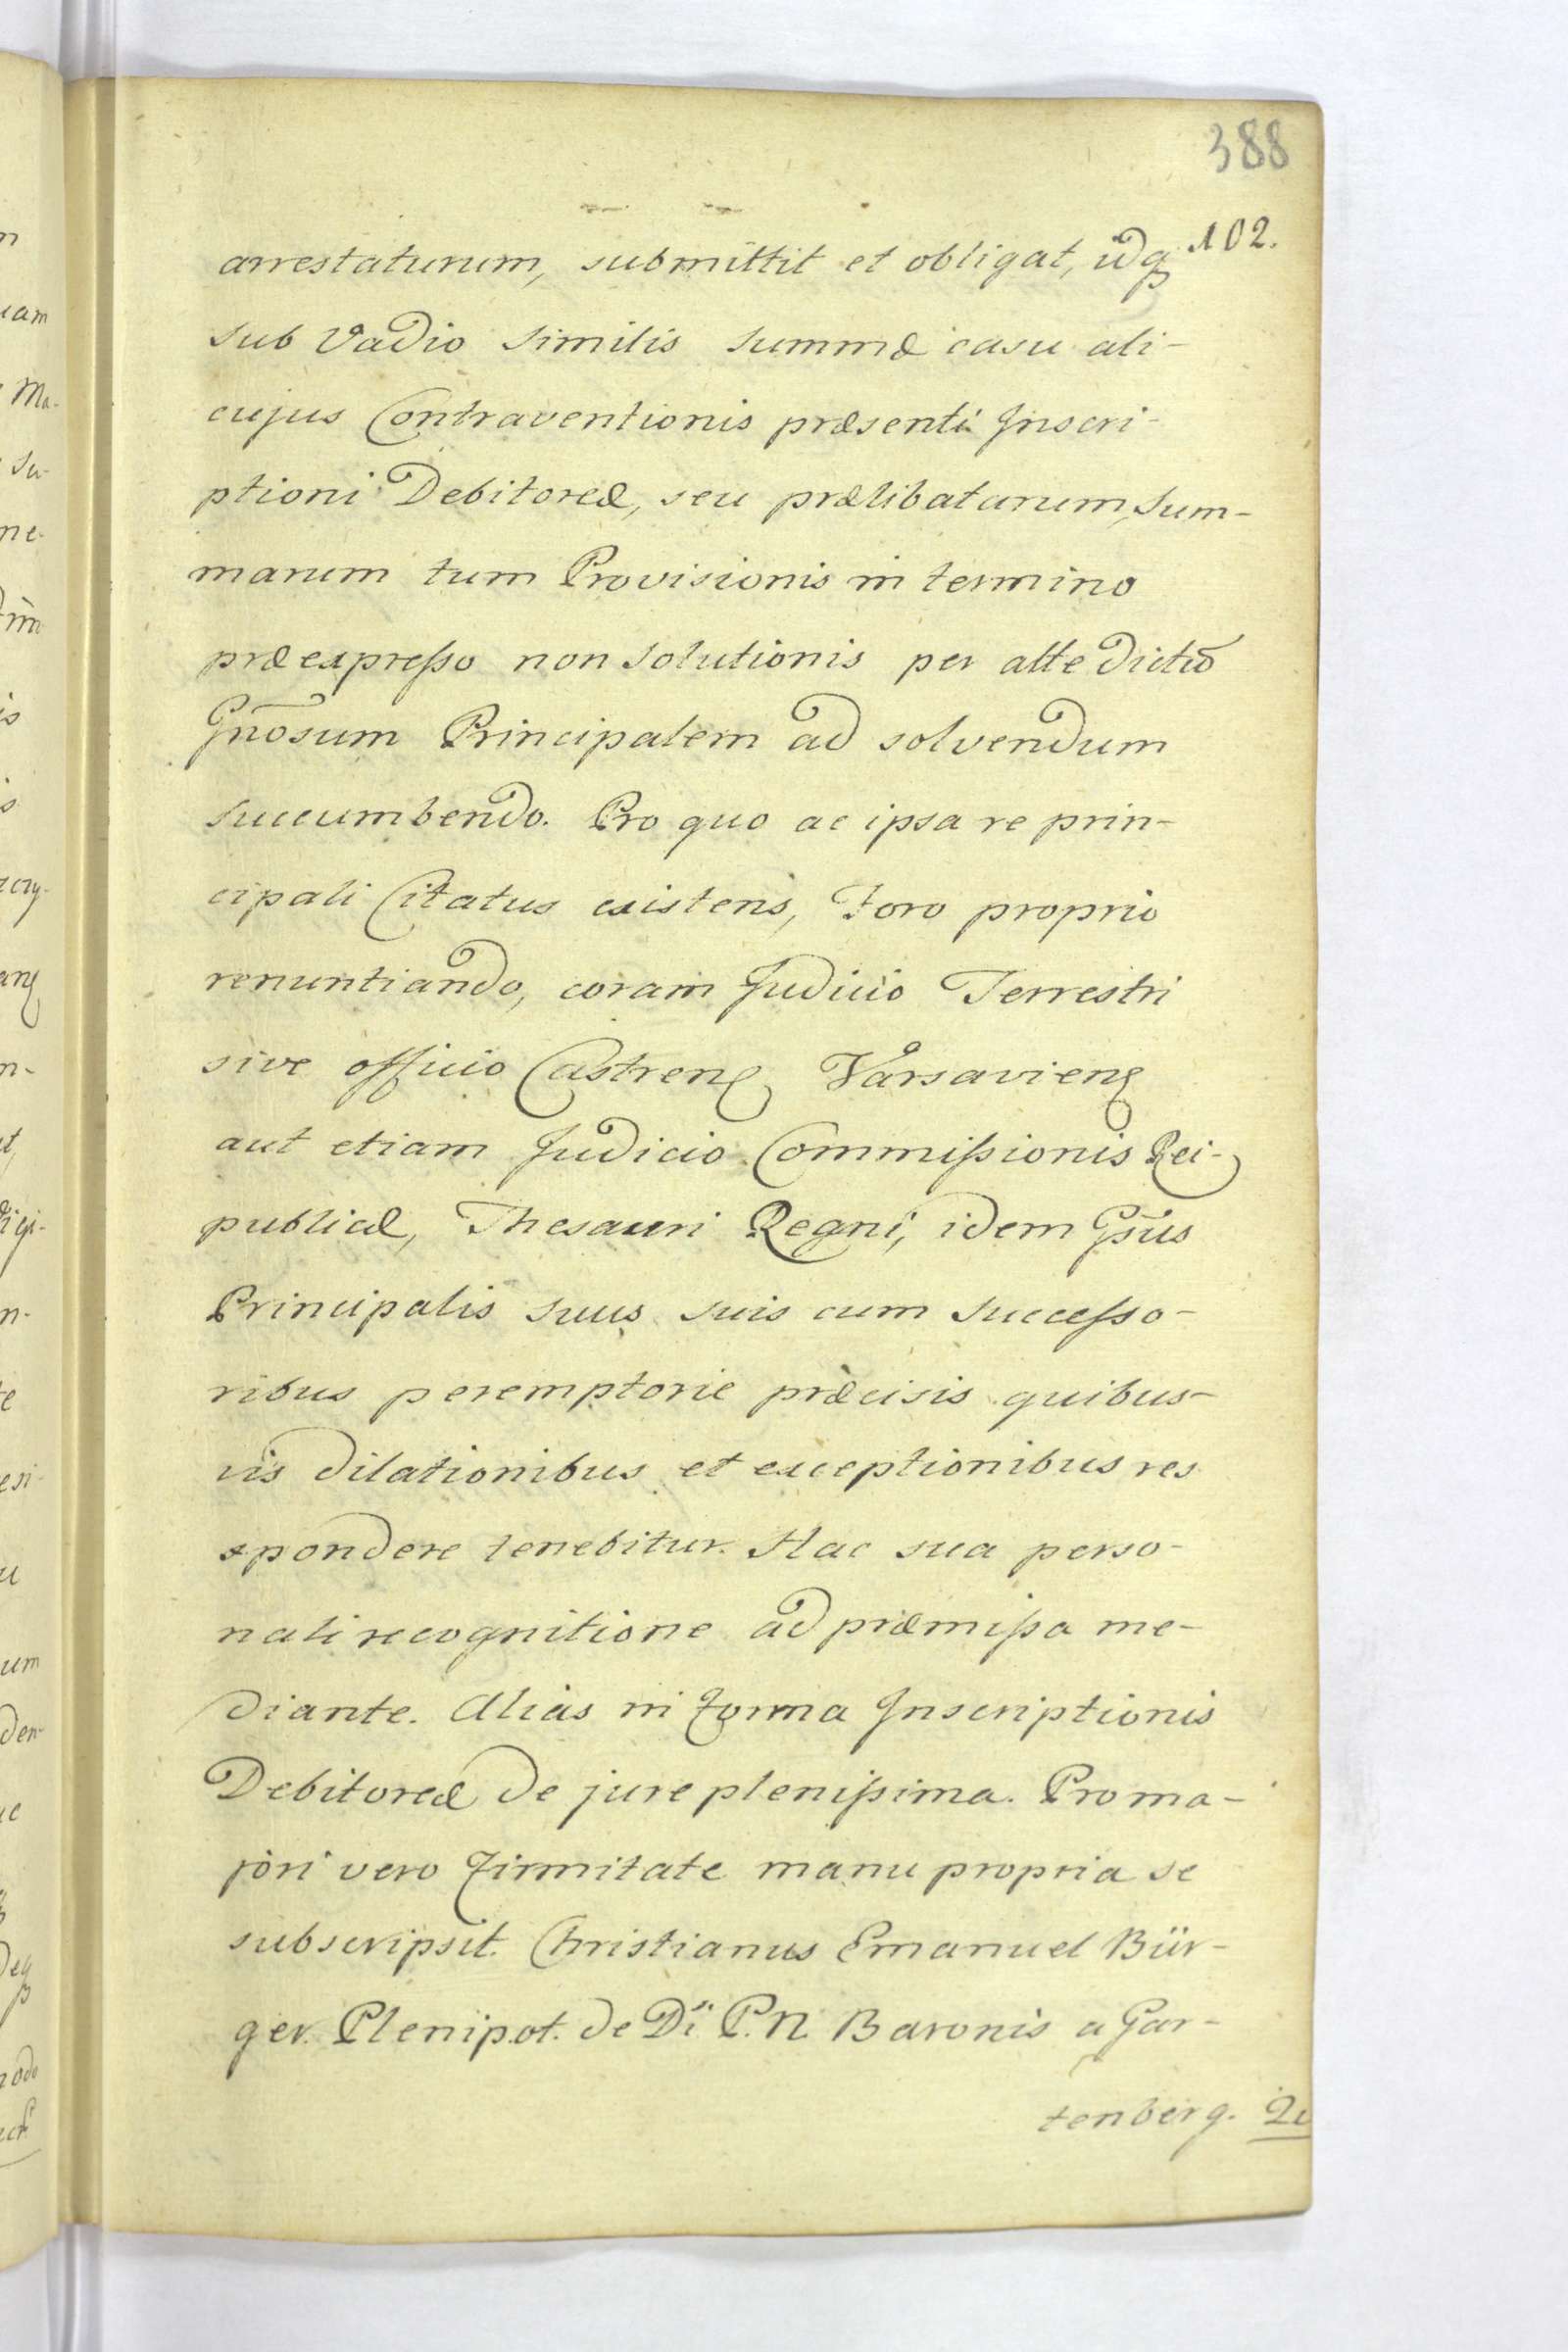 388
102.
arrestaturum, submittit et obligat, idq
sub Vadio similis summæ casu ali-
cujus Contraventionis præsenti Inscri-
ptioni Debitoreæ, seu prælibatarum, Sum-
marum tum Provisionis in termino
præexpresso non Solutionis per atte dictũ
Gnõsum Principalem ad solvendum
succumbendo. Pro quo ac ipsa re prin-
cipali Citatus existens, Foro proprio
renuntiando, coram Judicio Terrestri
sive officio Castren Varsavien
aut etiam Judicio Commissionis Rei-
publicæ, Thesauri Regni, idem Gsus
Principalis suus suis cum Successo-
ribus peremptorie præcisis quibus-
vis dilationibus et exceptionibus res
spondere tenebitur. Hac sua perso-
nali recognitione ad præmissa me-
diante. Alias in forma Inscriptionis
Debitoreæ de jure plenissima. Pro ma-
jori vero firmitate manu propria se
subscripsit. Christianus Emanuel Bür-
ger. Plenipot. de Di P. N. Baronis a Gar-
tenberg.